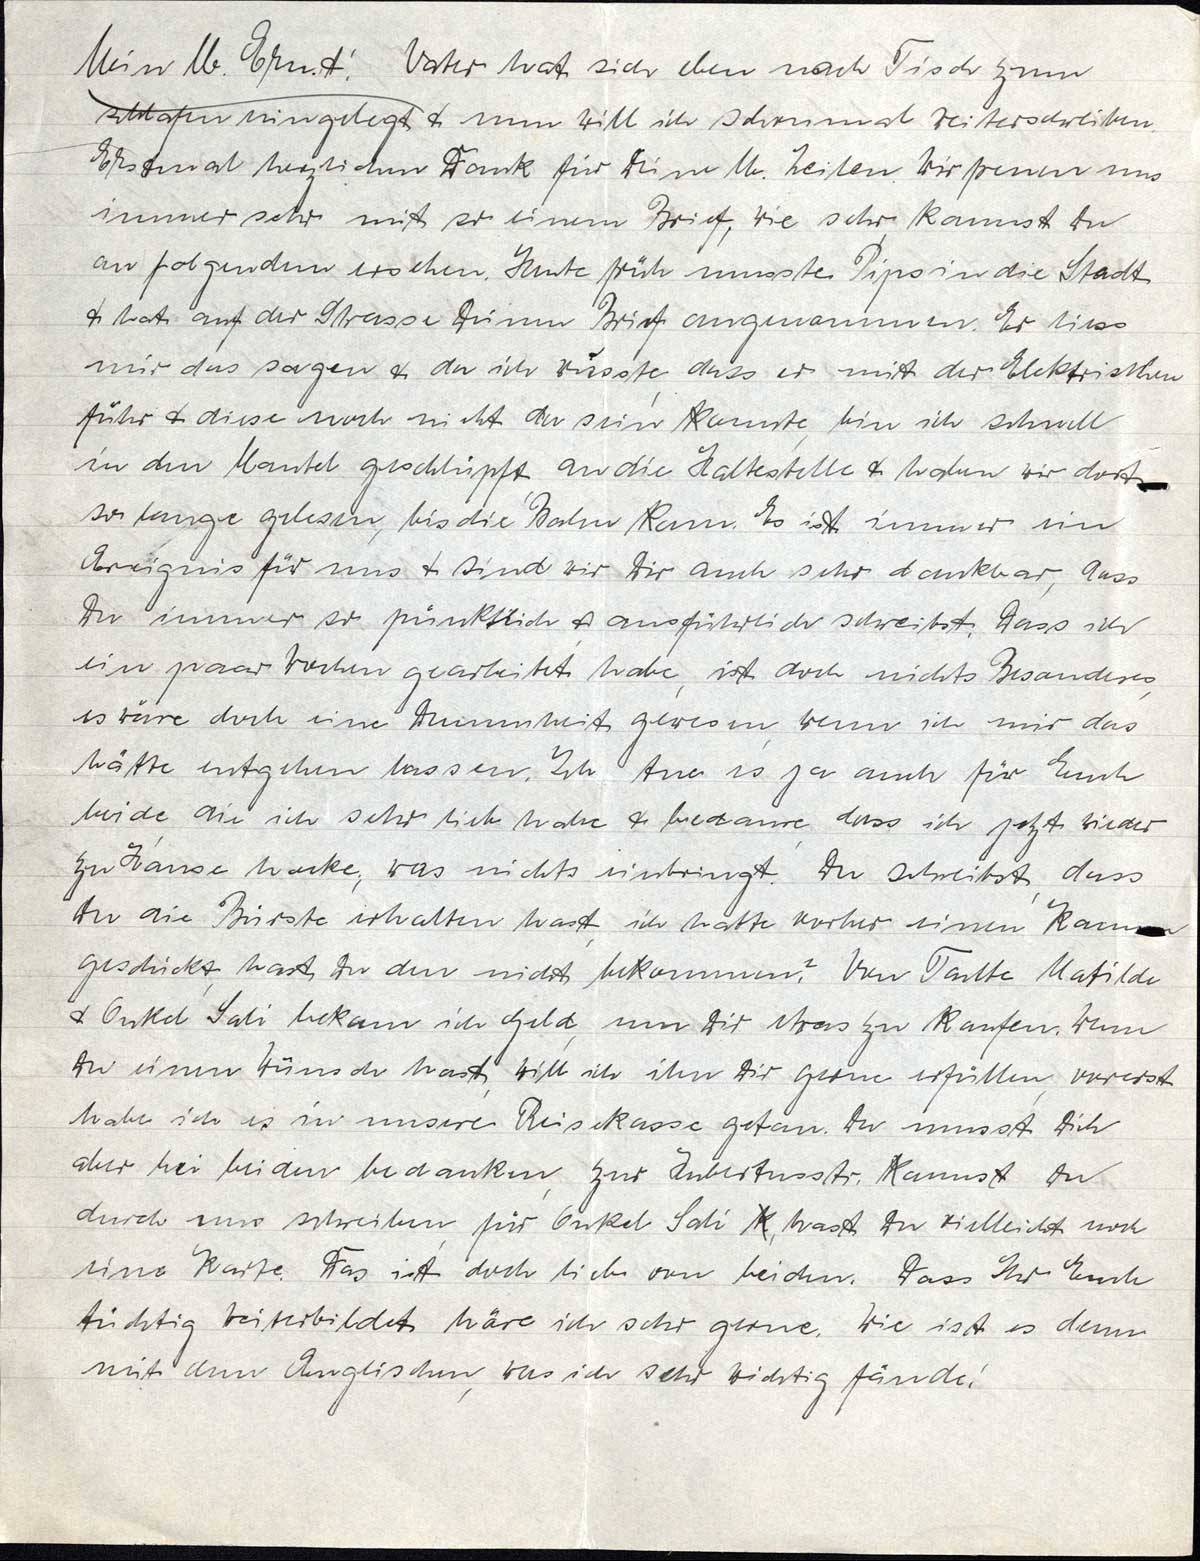 Mein lb. Ernst! Vater hat sich eben nach Tisch zum
schlafen hingelegt & nun will ich schonmal weiterschreiben.
Erstmal herzlichen Dank für Deine lb. Zeilen. Wir freuen uns
immer sehr mit so einem Brief, wie sehr, kannst Du
an folgendem ersehen. Heute früh musste Pips in die Stadt
& hat auf der Strasse Deinen Brief angenommen. Er liess
mir das sagen & da ich wusste, dass er mit der Elektrischen
führ & diese noch nicht da sein konnte, bin ich schnell
in den Mantel geschlüpft an die Haltestelle & haben wir dort
so lange gelesen, bis die Bahn kam. Es ist immer ein
Ereignis für uns & sind wir Dir auch sehr dankbar, dass
Du immer so pünktlich & ausführlich schreibst. Dass ich
ein paar Wochen gearbeitet habe, ist doch nichts Besonderes,
es wäre doch eine Dummheit gewesen, wenn ich mir das
hätte entgehen lassen. Ich tue es ja auch für Euch
beide, die ich sehr lieb habe & bedaure, dass ich jetzt wieder
zu Hause hocke, was nichts einbringt. Du schreibst, dass
Du die Bürste erhalten hast, ich hatte vorher einen Kamm
geschickt, hast Du den nicht bekommen? Von Tante Matilde
& Onkel Sali bekam ich Geld, um Dir etwas zu kaufen. Wenn
Du einen Wunsch hast, will ich ihn Dir gerne erfüllen, vorerst
habe ich es in unsere Reisekasse getan. Du musst Dich
aber bei beiden bedanken, zur Hubertusstr. kannst Du
durch uns schreiben, für Onkel Sali K, hast Du vielleicht noch
eine Karte. Das ist doch lieb von beiden. Dass Ihr Euch
tüchtig weiterbildet, häre ich sehr gerne. Wie ist es denn
mit dem Englischen, was ich sehr wichtig fände!